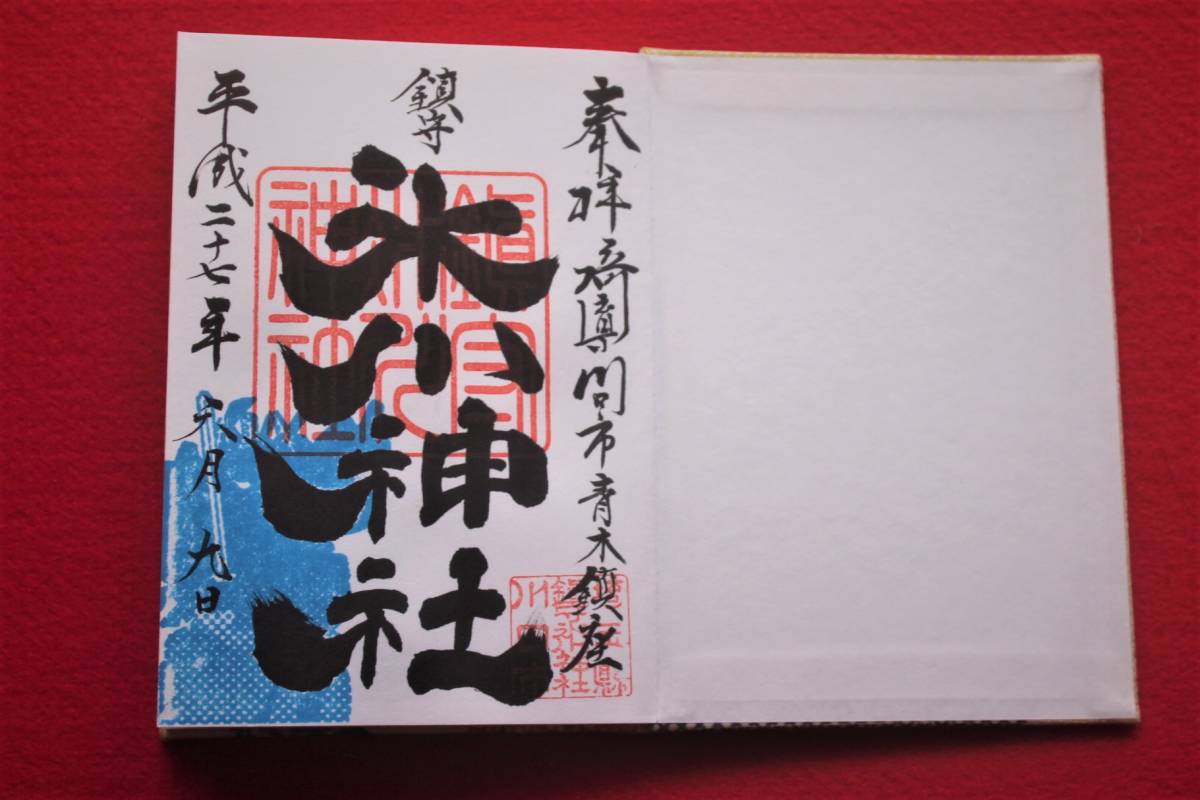 奉拝 埼玉県川口市青木鎮座
鎮守
氷川神社
平成二十七年 六月 九日
鎮守
氷川
神社